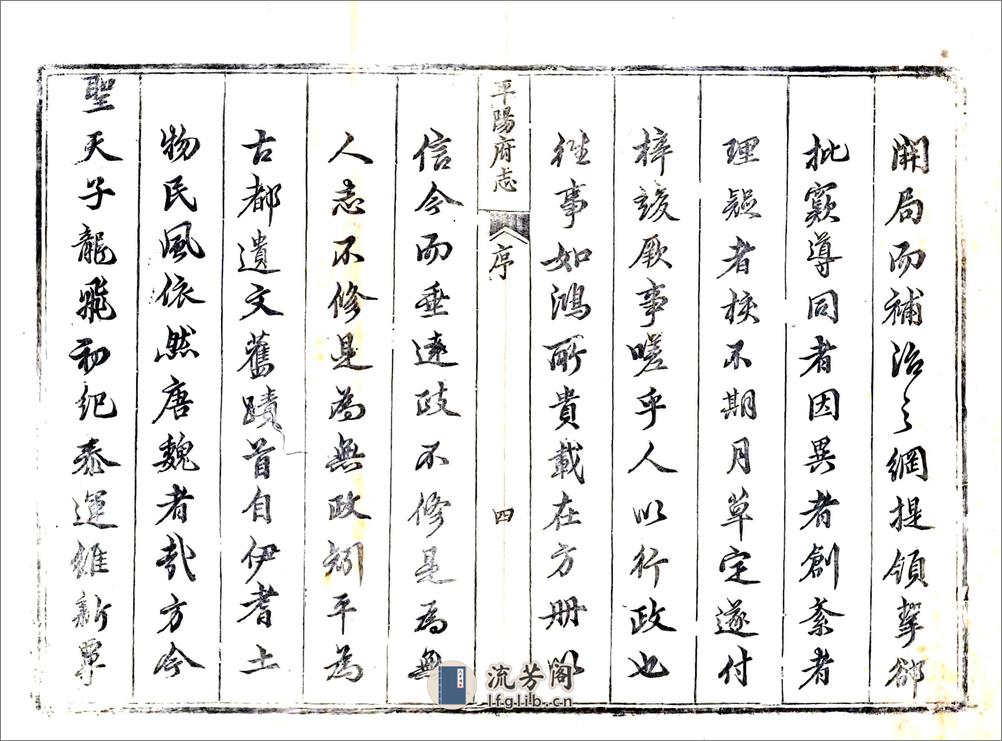 開局而補治之綱提領挈郤
批窾導同者因異者創紊者
理疑者核不期月草定遂付
梓竣厥事嗟乎人以行政也
往事如鴻所貴載在方冊以
平陽府志 序 四
信今而垂遠政不修是為無
人志不修是為無政矧平為
古都遺文舊蹟首自伊耆土
物民風依然唐魏者哉方今
聖天子龍飛初紀泰運維新覃
流芳阁
lfglib.cn